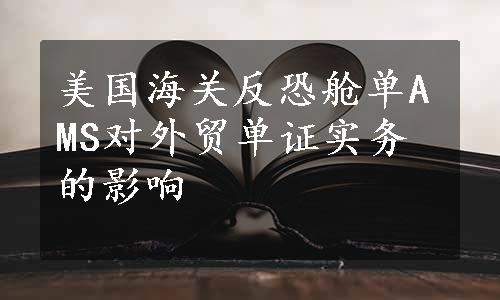 美国海关反恐舱单A
MS对外贸单证实务
的影响